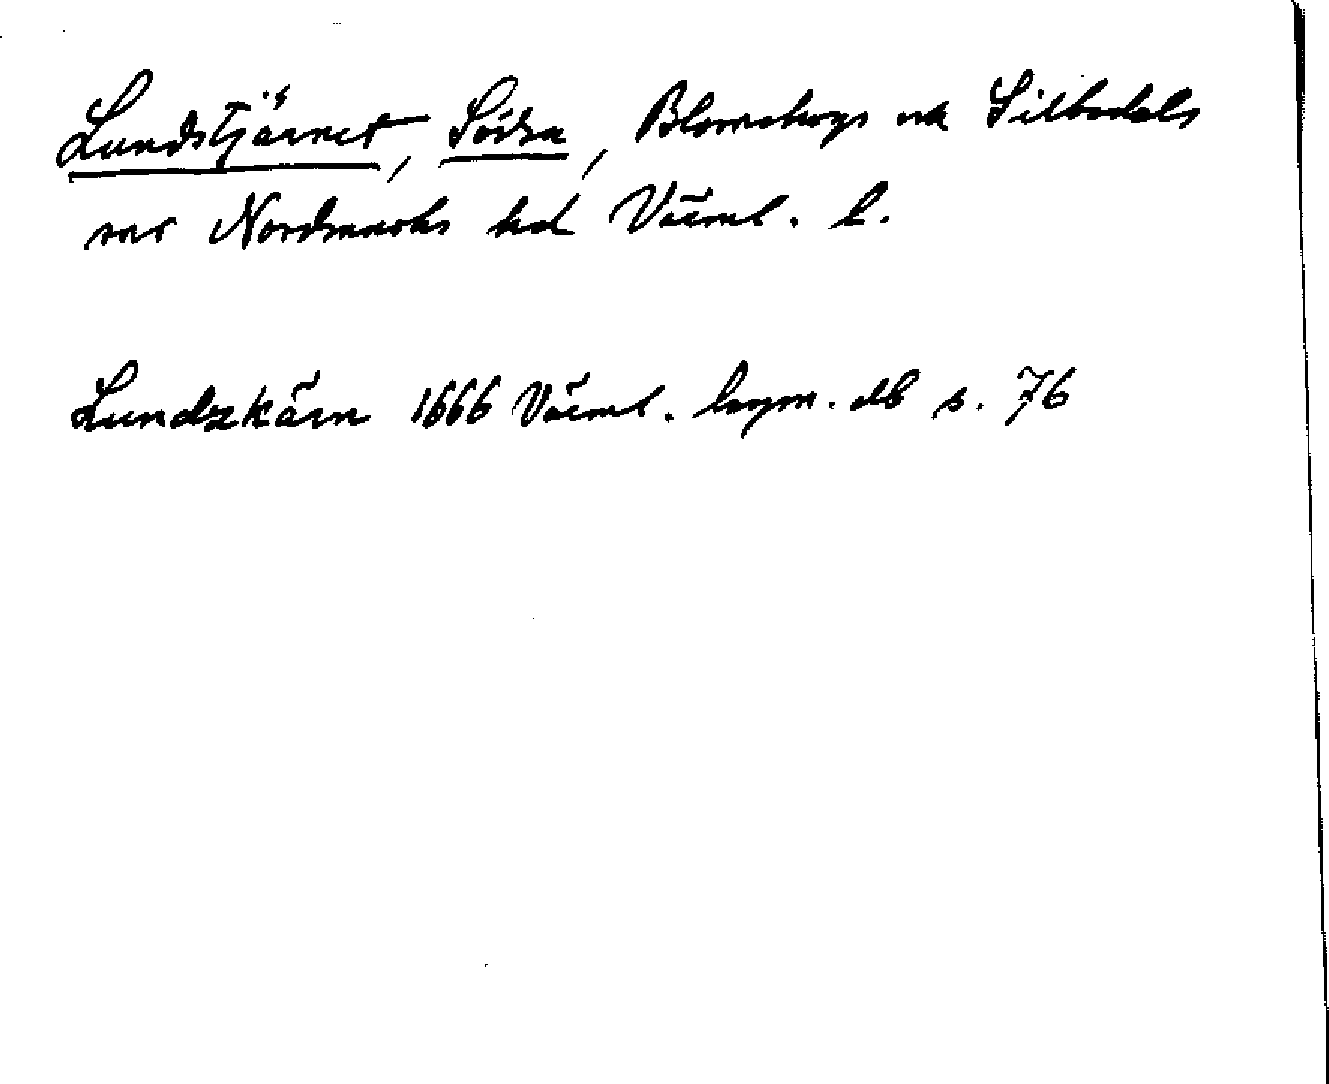 Lundstjärnet, Södra, Blomskogs och Silbodals
snr Nordmarks hd Värml. l.
Lundzkärn 1666 Värml. lagm. db s. 76